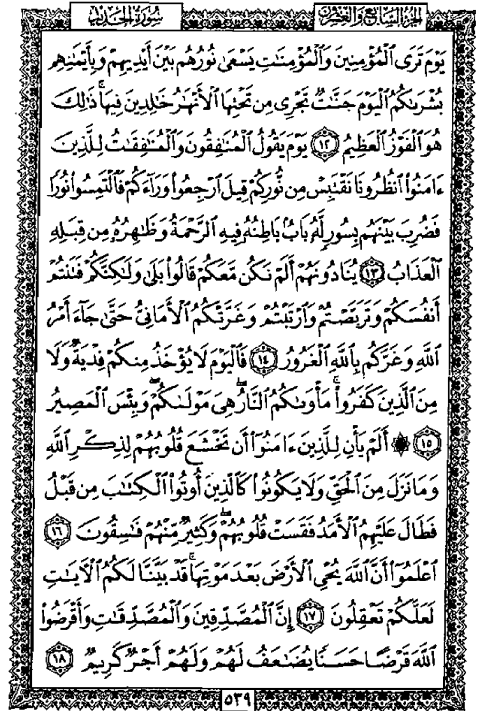 سُورَةُ الْحَدِيدِ الجُزْءُ السَّابِعُ وَالعِشْرُونَ
يَوْمَ تَرَى الْمُؤْمِنِينَ وَالْمُؤْمِنَاتِ يَسْعَى نُورُهُم بَيْنَ أَيْدِيهِمْ وَبِأَيْمَانِهِم
بُشْرَاكُمُ الْيَوْمَ جَنَّاتٌ تَجْرِي مِن تَحْتِهَا الْأَنْهَارُ خَالِدِينَ فِيهَا ۚ ذَٰلِكَ
هُوَ الْفَوْزُ الْعَظِيمُ ١٢ يَوْمَ يَقُولُ الْمُنَافِقُونَ وَالْمُنَافِقَاتُ لِلَّذِينَ
ءَامَنُوا انظُرُونَا نَقْتَبِسْ مِن نُّورِكُمْ قِيلَ ارْجِعُوا وَرَاءَكُمْ فَالْتَمِسُوا نُورًا
فَضُرِبَ بَيْنَهُم بِسُورٍ لَّهُ بَابٌ بَاطِنُهُ فِيهِ الرَّحْمَةُ وَظَاهِرُهُ مِن قِبَلِهِ
الْعَذَابُ ١٣ يُنَادُونَهُمْ أَلَمْ نَكُن مَّعَكُمْ قَالُوا بَلَىٰ وَلَٰكِنَّكُمْ فَتَنتُمْ
أَنفُسَكُمْ وَتَرَبَّصْتُمْ وَارْتَبْتُمْ وَغَرَّتْكُمُ الْأَمَانِيُّ حَتَّىٰ جَاءَ أَمْرُ
اللَّهِ وَغَرَّكُم بِاللَّهِ الْغَرُورُ ١٤ فَالْيَوْمَ لَا يُؤْخَذُ مِنكُمْ فِدْيَةٌ وَلَا
مِنَ الَّذِينَ كَفَرُوا ۚ مَأْوَاكُمُ النَّارُ ۖ هِيَ مَوْلَاكُمْ ۖ وَبِئْسَ الْمَصِيرُ
١٥ ۞ أَلَمْ يَأْنِ لِلَّذِينَ ءَامَنُوا أَن تَخْشَعَ قُلُوبُهُمْ لِذِكْرِ اللَّهِ
وَمَا نَزَلَ مِنَ الْحَقِّ وَلَا يَكُونُوا كَالَّذِينَ أُوتُوا الْكِتَابَ مِن قَبْلُ
فَطَالَ عَلَيْهِمُ الْأَمَدُ فَقَسَتْ قُلُوبُهُمْ ۖ وَكَثِيرٌ مِّنْهُمْ فَاسِقُونَ ١٦
اعْلَمُوا أَنَّ اللَّهَ يُحْيِ الْأَرْضَ بَعْدَ مَوْتِهَا ۚ قَدْ بَيَّنَّا لَكُمُ الْآيَاتِ
لَعَلَّكُمْ تَعْقِلُونَ ١٧ إِنَّ الْمُصَّدِّقِينَ وَالْمُصَّدِّقَاتِ وَأَقْرَضُوا
اللَّهَ قَرْضًا حَسَنًا يُضَاعَفُ لَهُمْ وَلَهُمْ أَجْرٌ كَرِيمٌ ١٨
٥٣٩